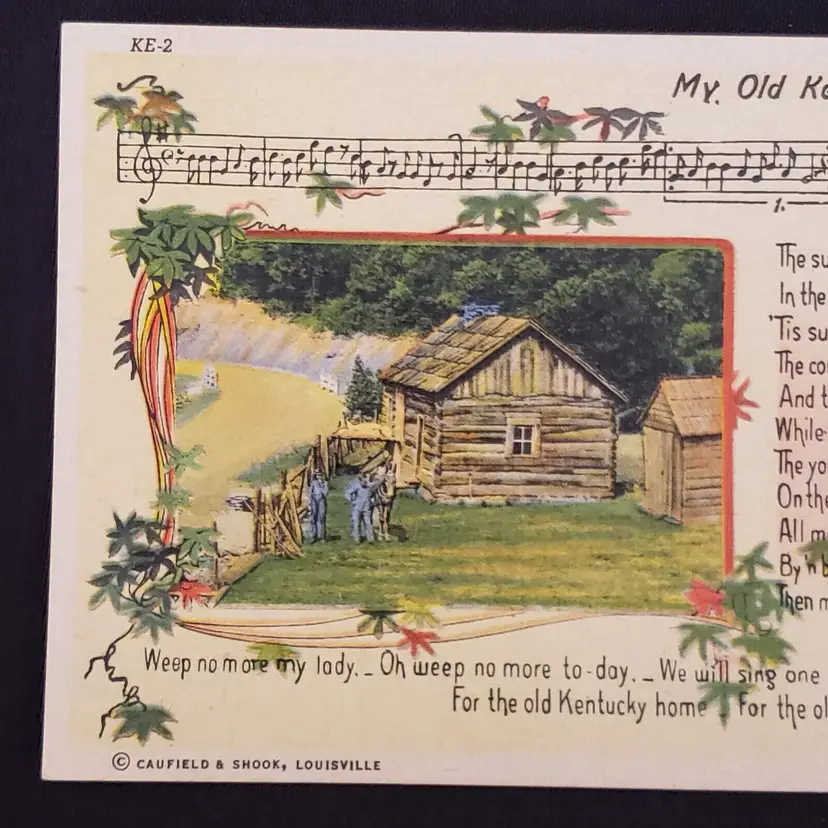 KE-2
My. Old Ke
1.
The su
In the
'Tis su
The co
And t
While
The yo
On the
All m
By 'n b
Then m
Weep no more my lady. _ Oh weep no more to-day. _ We will sing one
For the old Kentucky home _ For the ol
© CAUFIELD & SHOOK, LOUISVILLE